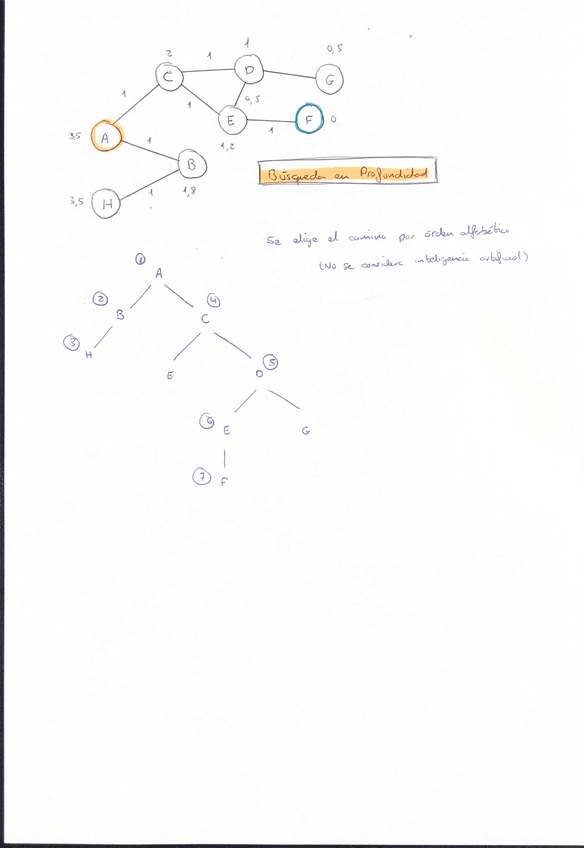 2
1
1
0,5
C
D
G
1
1
0,5
3,5
A
E
1
F
0
1
1,2
B
3,5
H
1
1,8
Búsqueda en Profundidad
Se elige el camino por órden alfabético
(No se considera inteligencia artificial)
1
A
2
B
4
C
3
H
E
5
D
6
E
G
7
F